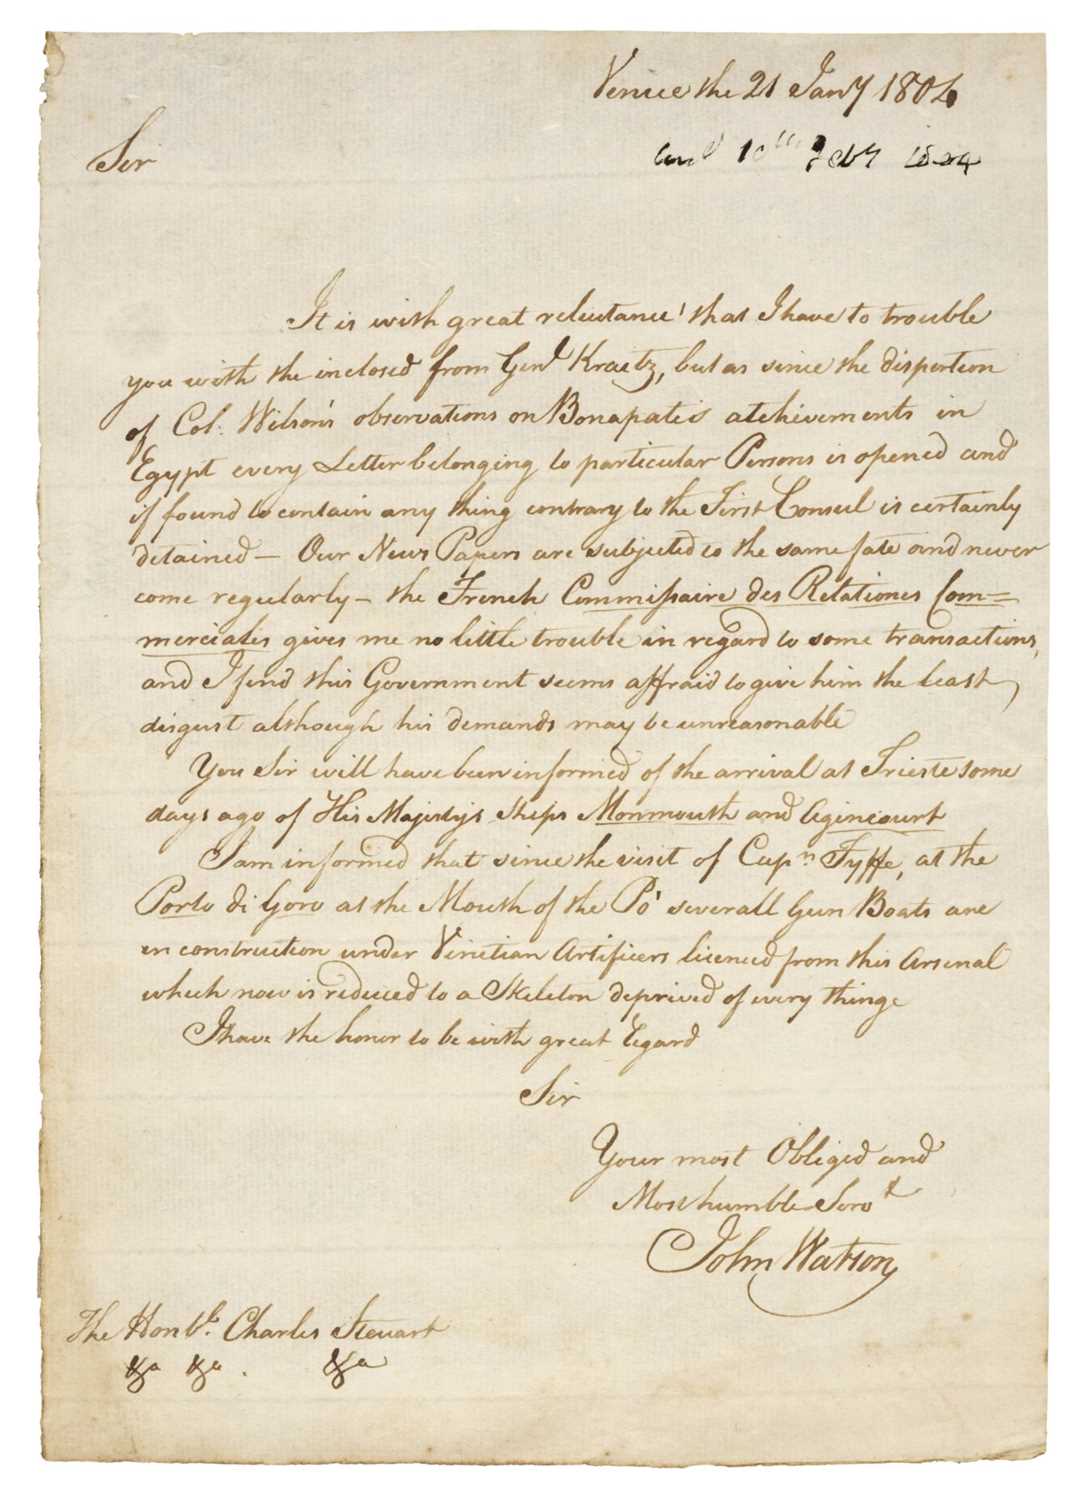 Venice the 21 Jany 1804
Sir
10th Feby 1804
It is with great reluctance that I have to trouble
you with the inclosed from Genl Kraitz, but as since the dispertion
of Col: Wilson's observations on Bonapatis atchivements in
Egypt every Letter belonging to particular Persons is opened and
if found to contain any thing contrary to the First Consul is certainly
detained – Our News Papers are subjected to the same fate and never
come regularly – the French Commissaire des Relationes Com=
merciales gives me no little trouble in regard to some transactions,
and I find this Government seems affraid to give him the least
disgust although his demands may be unreasonable
You Sir will have been informed of the arrival at Trieste some
days ago of His Majestys Ships Monmouth and Agincourt
I am informed that since the visit of Capn Fyffe, at the
Porto di Goro at the Mouth of the Po' severall Gun Boats are
in construction under Venetian Artificers licenced from this Arsenal
which now is reduced to a Skeleton deprived of every thinge
I have the honor to be with great Egard
Sir
Your most Obliged and
Most humble Servt
John Watson
The Honble. Charles Stewart
&a &a . &a